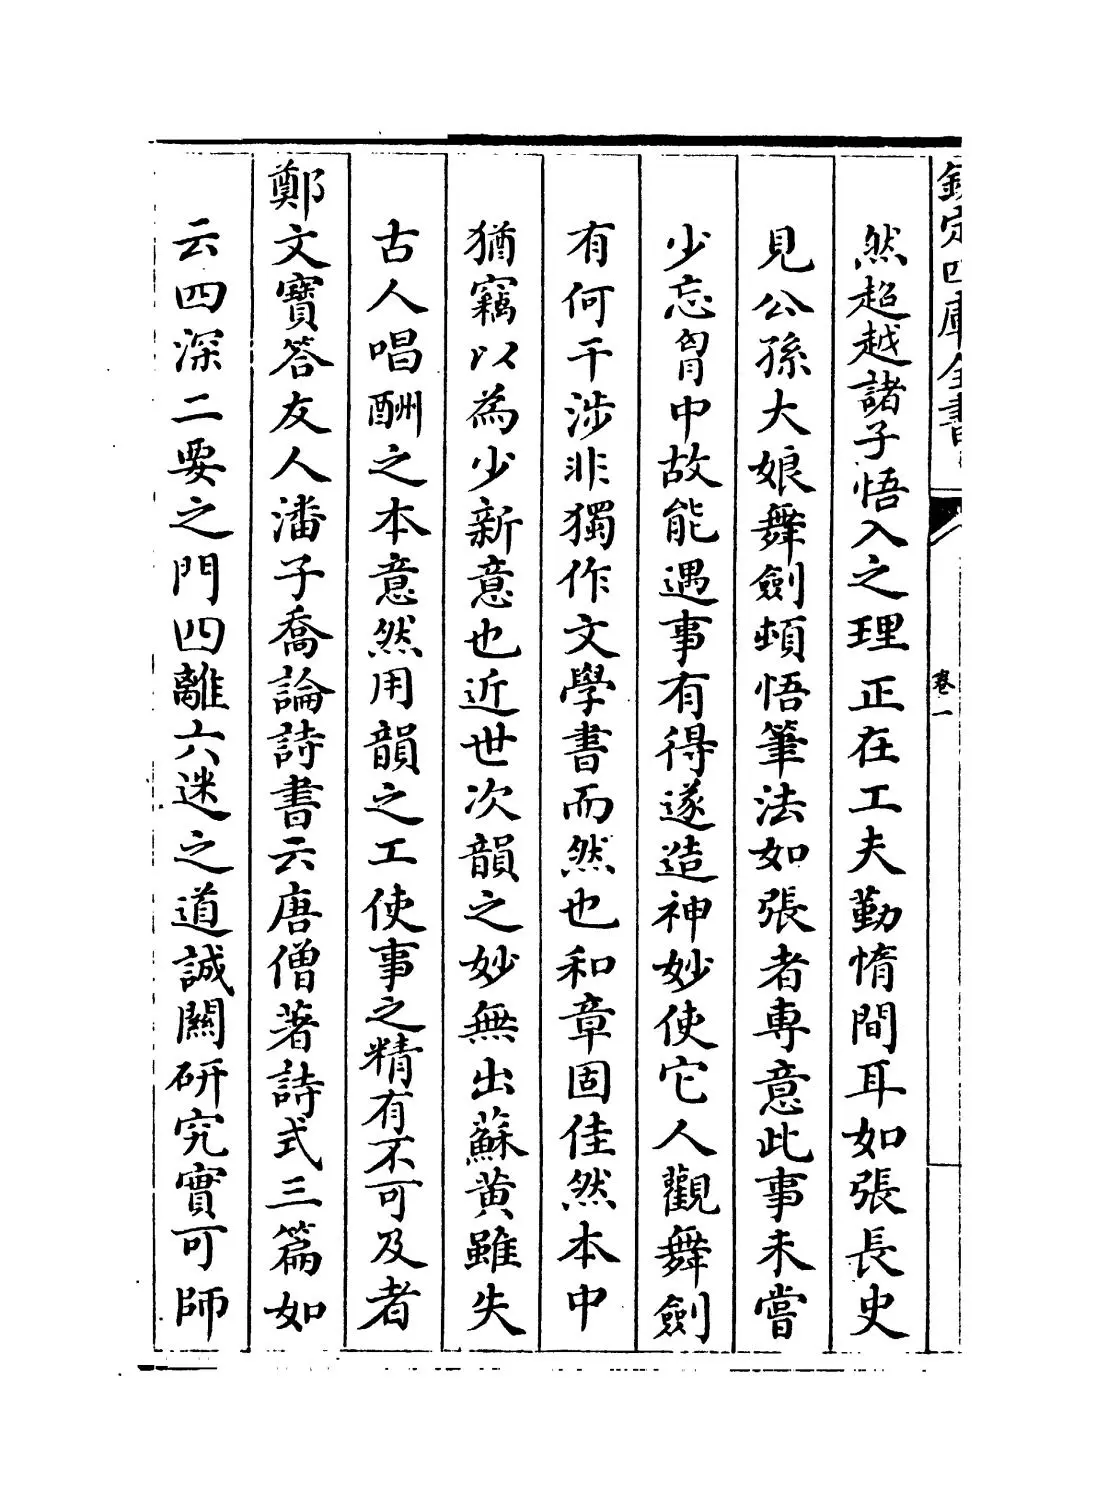 欽定四庫全書
卷一
然超越諸子悟入之理正在工夫勤惰間耳如張長史
見公孫大娘舞劍頓悟筆法如張者専意此事未嘗
少忘胷中故能遇事有得遂造神妙使它人觀舞劍
有何干涉非獨作文學書而然也和章固佳然本中
猶竊以為少新意也近世次韻之妙無出蘇黄雖失
古人唱酬之本意然用韻之工使事之精有不可及者
鄭文寶答友人潘子喬論詩書云唐僧著詩式三篇如
云四深二要之門四離六迷之道誠闗研究實可師